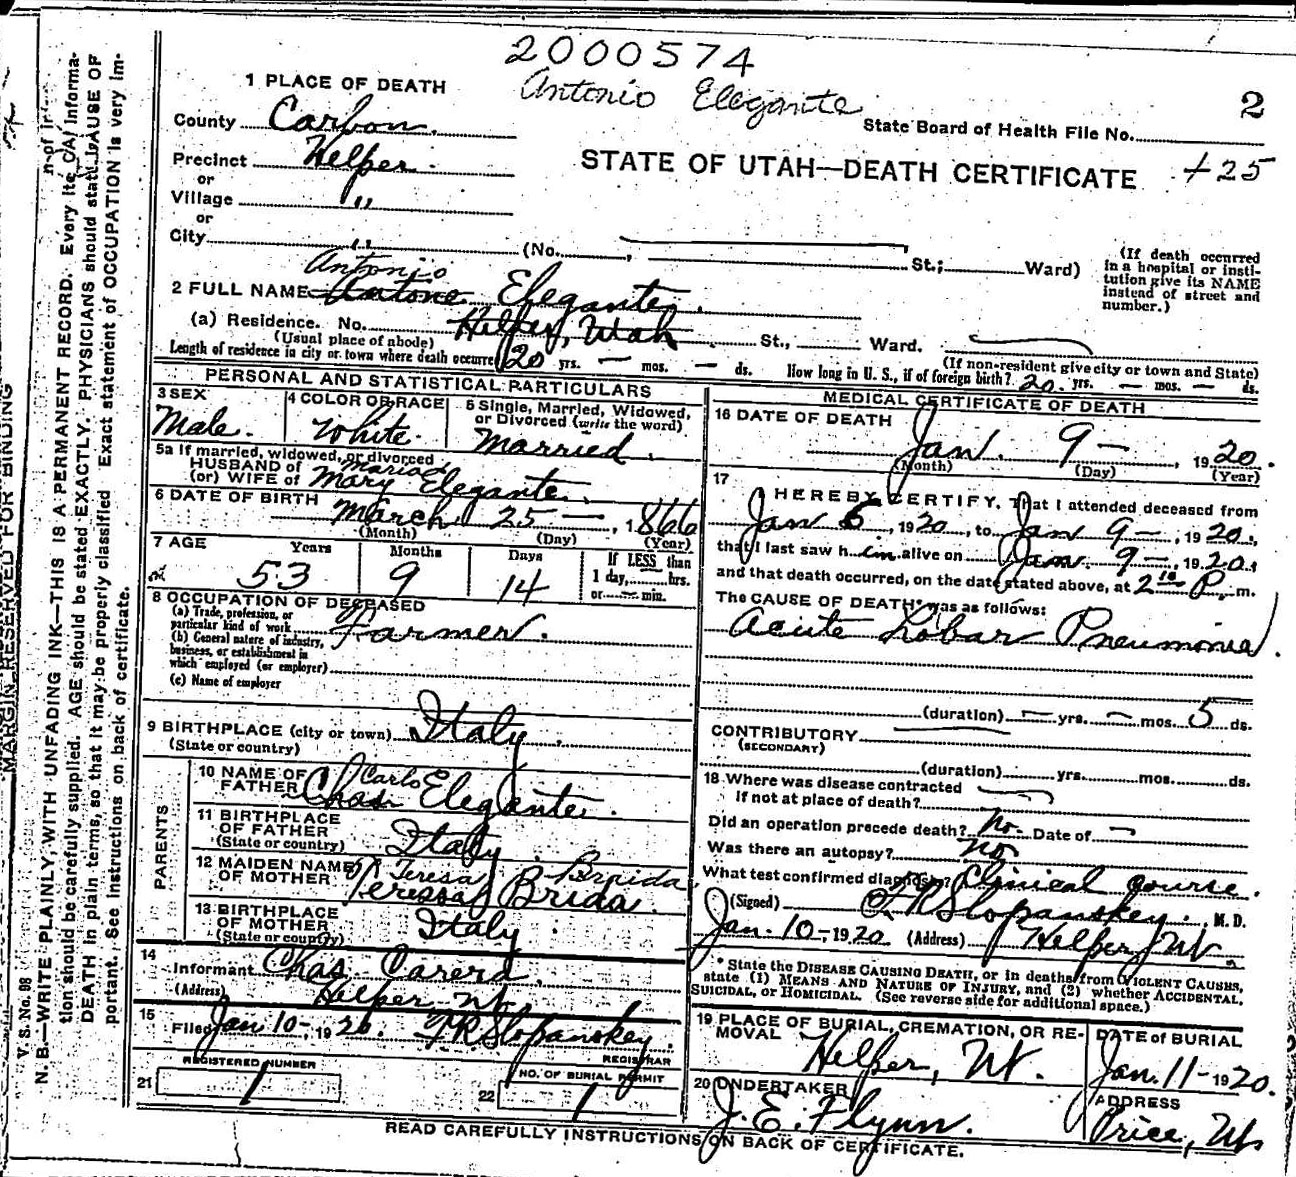 2000574
Antonio Elegante
2
1 PLACE OF DEATH
County Carbon.
State Board of Health File No.
Precinct Helper.
STATE OF UTAH—DEATH CERTIFICATE +25
or
Village "
or
City " (No. St.; Ward)
(If death occurred in a hospital or institution give its NAME instead of street and number.)
Antonio
2 FULL NAME Antone Elegante.
(a) Residence. No. Helper, Utah St., Ward.
(Usual place of abode) (If non-resident give city or town and State)
Length of residence in city or town where death occurred 20 yrs. — mos. — ds. How long in U. S., if of foreign birth? 20 yrs. — mos. — ds.
PERSONAL AND STATISTICAL PARTICULARS
3 SEX 4 COLOR OR RACE 5 Single, Married, Widowed, or Divorced (write the word)
Male. White. Married.
5a If married, widowed, or divorced
HUSBAND of
(or) WIFE of Mary Elegante.
6 DATE OF BIRTH
March 25 — , 1866
(Month) (Day) (Year)
7 AGE Years Months Days If LESS than
53 9 14 1 day, hrs.
or min.
8 OCCUPATION OF DECEASED
(a) Trade, profession, or particular kind of work Farmer.
(b) General nature of industry, business, or establishment in which employed (or employer)
(c) Name of employer
9 BIRTHPLACE (city or town) Italy.
(State or country)
PARENTS
10 NAME OF FATHER Carlo
Chas Elegante.
11 BIRTHPLACE OF FATHER Italy.
(State or country)
12 MAIDEN NAME OF MOTHER Teresa Braida
Teressa Brida.
13 BIRTHPLACE OF MOTHER Italy.
(State or country)
14
Informant Chas. Carera.
(Address) Helper Ut.
15
Filed Jan. 10-, 1920. F R Slopanskey.
REGISTRAR
REGISTERED NUMBER NO. OF BURIAL PERMIT
21 1 22 1
MEDICAL CERTIFICATE OF DEATH
16 DATE OF DEATH
Jan. 9 — , 1920.
(Month) (Day) (Year)
17
I HEREBY CERTIFY, That I attended deceased from
Jan 5, 1920, to Jan 9 —, 1920.,
that I last saw him alive on Jan. 9 —, 1920.,
and that death occurred, on the date stated above, at 2 10 P. m.
The CAUSE OF DEATH* was as follows:
Acute Lobar Pneumonia.
(duration) — yrs. — mos. 5 ds.
CONTRIBUTORY
(SECONDARY)
(duration) yrs. mos. ds.
18 Where was disease contracted
If not at place of death?
Did an operation precede death? No. Date of —
Was there an autopsy? No
What test confirmed diagnosis? Clinical course.
(Signed) F R Slopanskey. M. D.
Jan. 10-, 1920 (Address) Helper, Ut.
* State the DISEASE CAUSING DEATH, or in deaths from VIOLENT CAUSES,
state (1) MEANS AND NATURE OF INJURY, and (2) whether ACCIDENTAL,
SUICIDAL, or HOMICIDAL. (See reverse side for additional space.)
19 PLACE OF BURIAL, CREMATION, OR REMOVAL DATE of BURIAL
Helper, Ut. Jan. 11-1920.
20 UNDERTAKER ADDRESS
J. E. Flynn. Price, Ut.
READ CAREFULLY INSTRUCTIONS ON BACK OF CERTIFICATE.
MARGIN RESERVED FOR BINDING
V. S. No. 98
N. B.—WRITE PLAINLY WITH UNFADING INK—THIS IS A PERMANENT RECORD. Every item of information should be carefully supplied. AGE should be stated EXACTLY. PHYSICIANS should state CAUSE OF DEATH in plain terms, so that it may be properly classified. Exact statement of OCCUPATION is very important. See instructions on back of certificate.